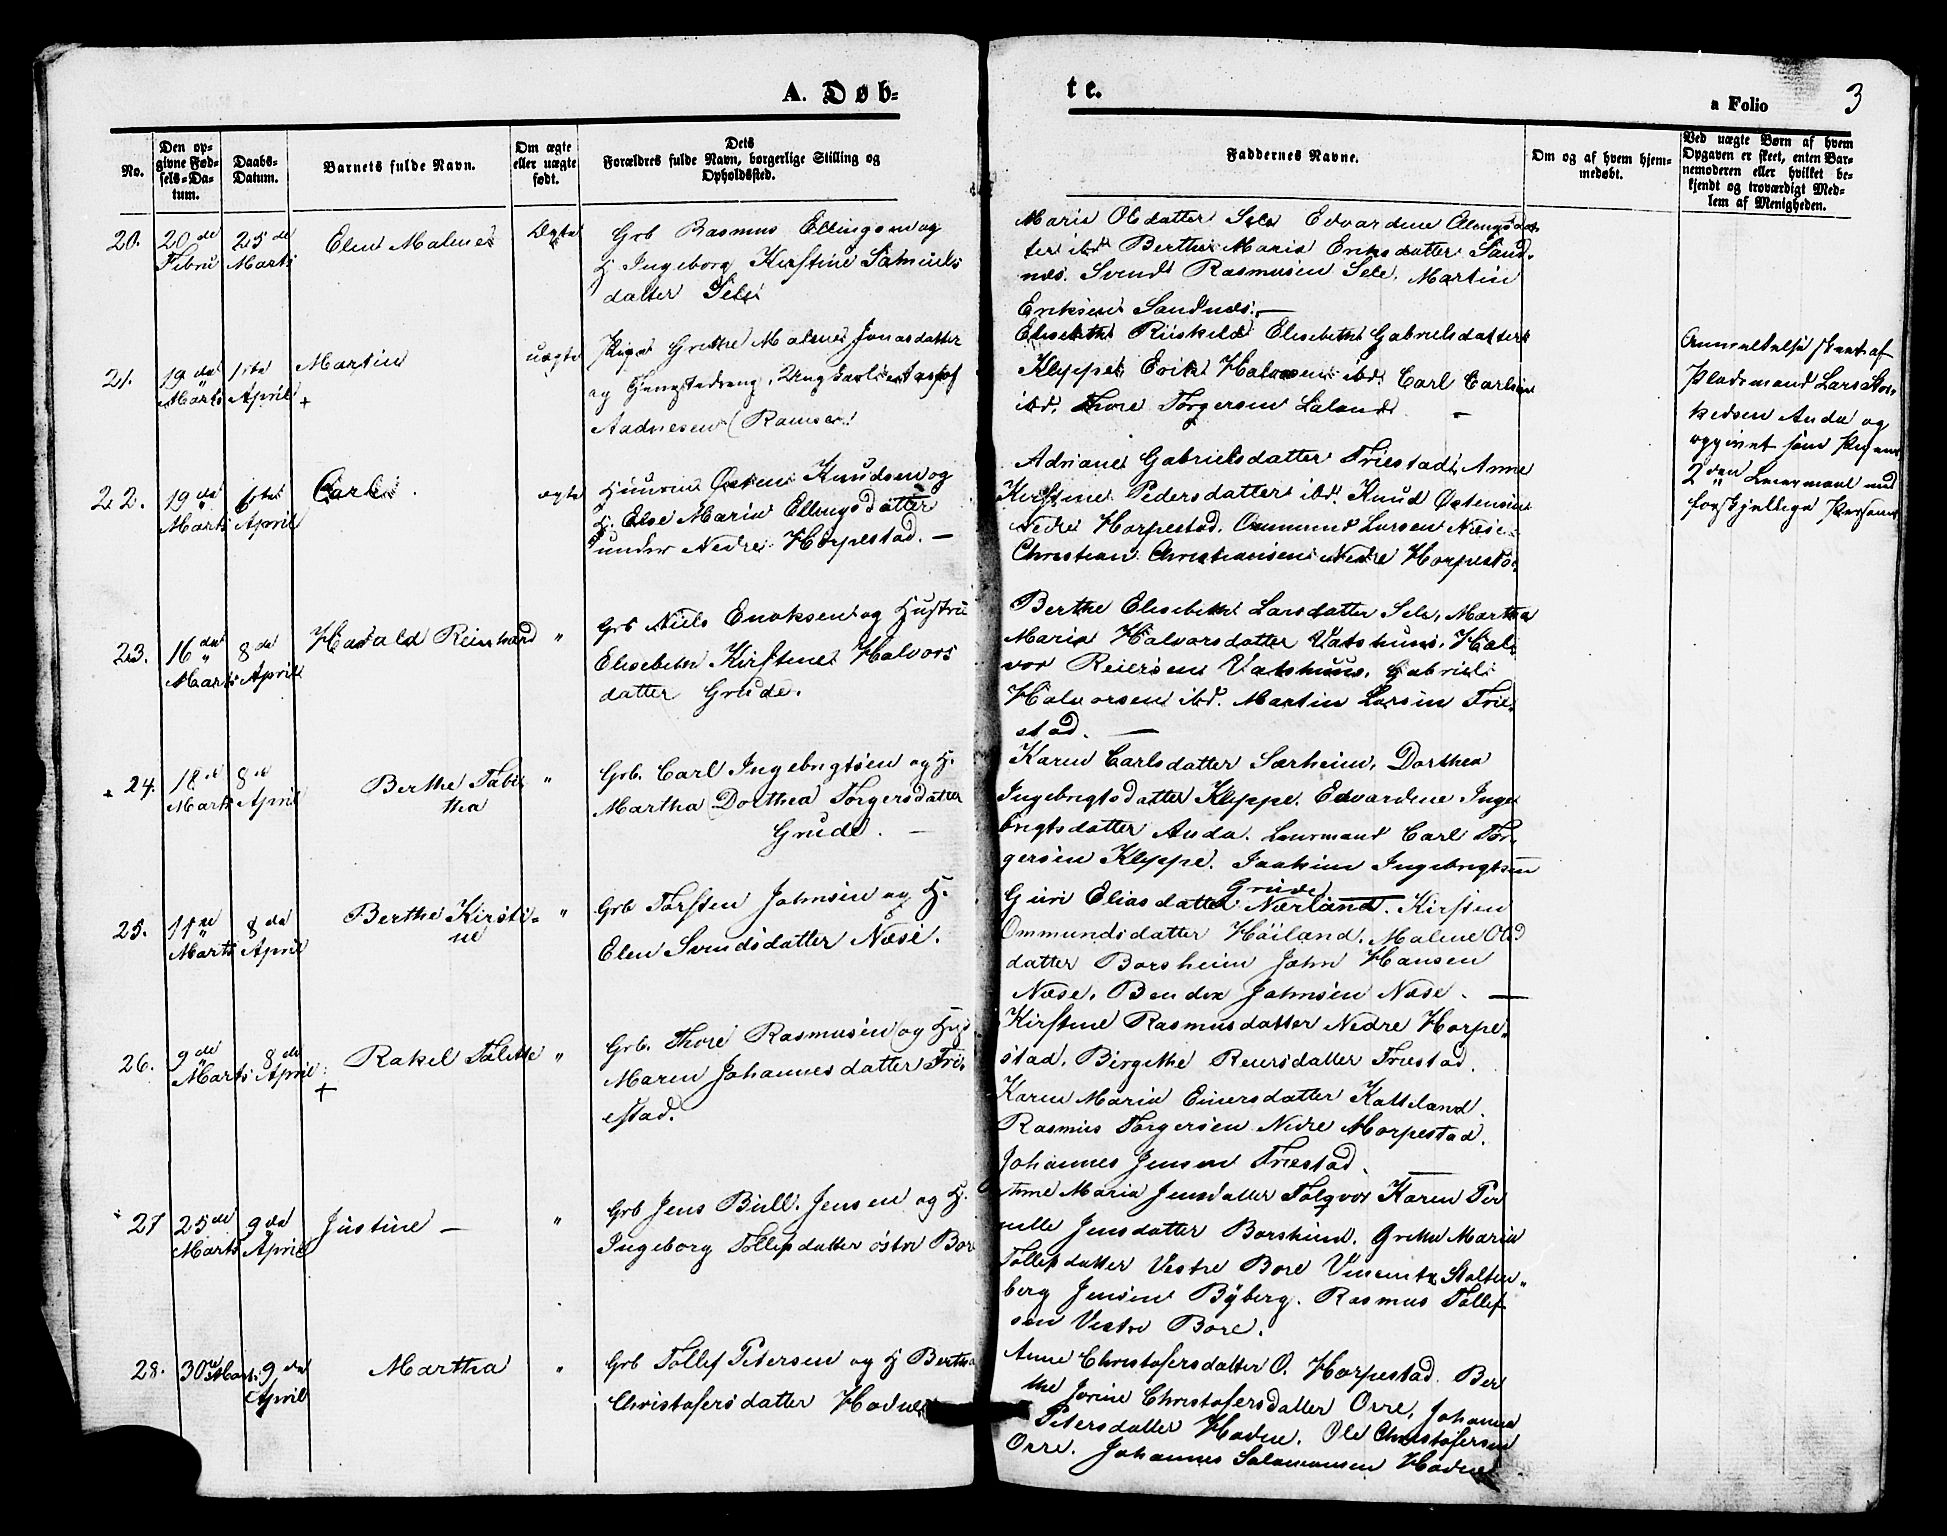 A. Døb-
te.
a Folio 3
No.
Den op-
givne Fød-
sels-Da-
tum.
Daabs-
Datum.
Barnets fulde Navn.
Om ægte
eller uægte
født.
Dets
Forældres fulde Navn, borgerlige Stilling og
Opholdssted.
Faddernes Navne.
Om og af hvem hjem-
medøbt.
Ved uægte Børn af hvem
Opgaven er skeet, enten Bar-
nemoderen eller hvilket be-
kjendt og troværdigt Med-
lem af Menigheden.
20.
20de
Febru
25de
Marts
Elen Malene
Ægte
Grb Rasmus Ellingsen og
H. Ingeborg Kirstine Samuels
datter Sele
Marie Olsdatter Sele Edvardine
ter ibd Berthe Maria Eriksdatter Sand-
næs. Svend Rasmusen Sele. Martin
Eriksen Sandnæs. —
21.
19de
Marts
1ste
April
Martin
+
uægte
Pige Grethe Malene Jonasdatter
og Ungkarl
Aadnesen (Ramse)
Elisabeth Elisebeth Gabrielsdatter
Kleppe Erik Halvorsen ibd. Carl Carlsen
ibd. Thore Torgersen Laland. —
Anmeldelse skeet af
Pladsmand Lars
Anda og
opgivet som Pigens
2den Leiermaal med
forskjellige Personer
22.
19de
Marts
6te
April
Carl
ægte
Huusm Østen Knudsen og
H. Else Maria Ellingsdatter
under Nedre Horpestad. —
Adriane Gabrielsdatter Friestad, Anne
Kirstine Pedersdatter ibd. Knud Østensen
Nedre Horpestad. Ommund Larsen Næse
Christian Christiansen Nedre Horpestad
23.
16de
Marts
8de
April
Harald Reinhard
"
Grb Niels Enoksen og Hustru
Elisebeth Kirstine Halvors
datter Grude.
Berthe Elisebeth Larsdatter Sele, Martha
Maria Halvorsdatter Vatshuus. Hal
vor Reiersen Vatshuus. Gabriel
Halvorsen ibd. Martin Larsen Frie-
stad. —
24.
18de
Marts
8de
April
Berthe Tabi-
tha
"
Grb. Carl Ingebrigtsen og H.
Martha Dorthea Torgersdatter
Grude. —
Karen Carlsdatter Særheim. Dorthea
Ingebrigtsdatter Kleppe. Edvardine Inge
brigtsdatter Anda. Leurmand Carl Tor-
gersen Kleppe. Joakim Ingebrigtsen
Grude
25.
11te
Marts
8de
April
Berthe Kirsti-
ne
"
Grb Torsten Johnsen og H.
Elen Svendsdatter Næse.
Guri Eliasdatter Nærland. Kirsten
Ommundsdatter Høiland. Malene Ols
datter Borsheim John Hansen
Næse. Bendix Johnsen Næse. —
26.
9de
Marts
8de
April
+
Rakel Talette
"
Grb. Thore Rasmusen og Hust
Maren Johannesdatter Fri-
estad.
Kirstine Rasmusdatter Nedre Horpe-
stad. Birgithe Reiersdatter Friestad.
Karen Maria Einersdatter Katteland.
Rasmus Torgersen Nedre Horpestad.
Johannes Jensen Friestad. —
27
25de
Marts
9de
April
Justine —
"
Grb Jens Bull Jensen og H.
Ingeborg Tollefsdatter østre Bore
Ane Maria Jensdatter Tolgvor Karen Per
nille Jensdatter Borsheim. Grethe Maria
Tollefsdatter Vestre Bore Vincentz Stolten-
berg Jensen Byberg. Rasmus Tollef
sen Vestre Bore.
28.
30te Marts
9de
April
Martha
"
Grb Tollef Petersen og H Bertha
Christofersdatter Hodne
Anne Christofersdatter O. Horpestad. Ber
the Jorine Christofersdatter Orre, Johanne
Petersdatter Hodne. Ole Christofersen
Orre. Johannes Salamonsen Hodne